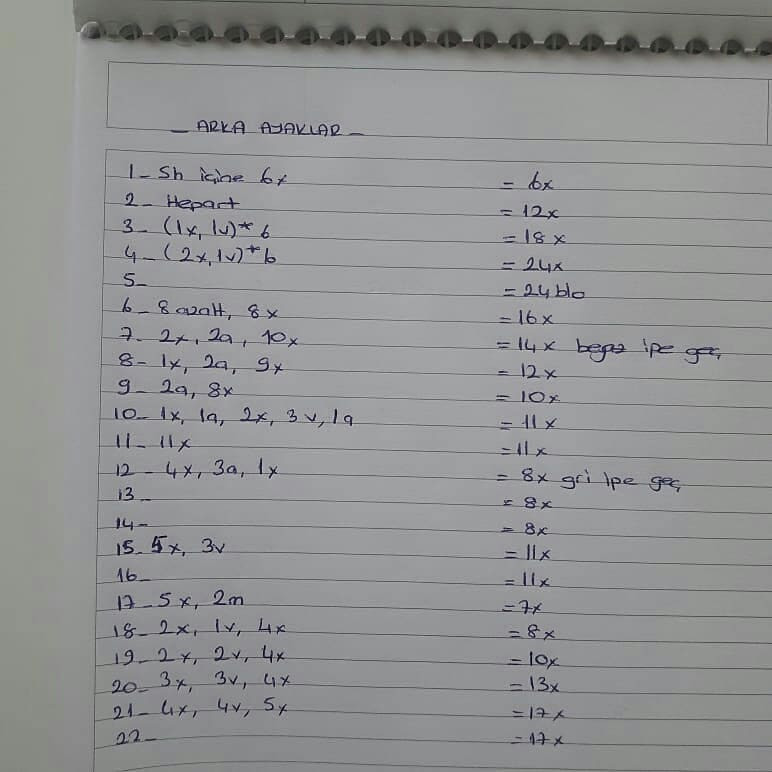 _ ARKA AYAKLAR _
1_ Sh içine 6x = 6x
2_ Hepart = 12x
3_ (1x, 1v)*6 = 18x
4_ (2x, 1v)*6 = 24x
5_ = 24 blo
6_ 8 azalt, 8x = 16x
7_ 2x, 2a, 10x = 14x ipe geç
8_ 1x, 2a, 9x = 12x
9_ 2a, 8x = 10x
10_ 1x, 1a, 2x, 3v, 1a = 11x
11_ 11x = 11x
12_ 4x, 3a, 1x = 8x gri ipe geç
13_ = 8x
14_ = 8x
15_ 5x, 3v = 11x
16_ = 11x
17_ 5x, 2m = 7x
18_ 2x, 1v, 4x = 8x
19_ 2x, 2v, 4x = 10x
20_ 3x, 3v, 4x = 13x
21_ 4x, 4v, 5x = 17x
22_ = 17x